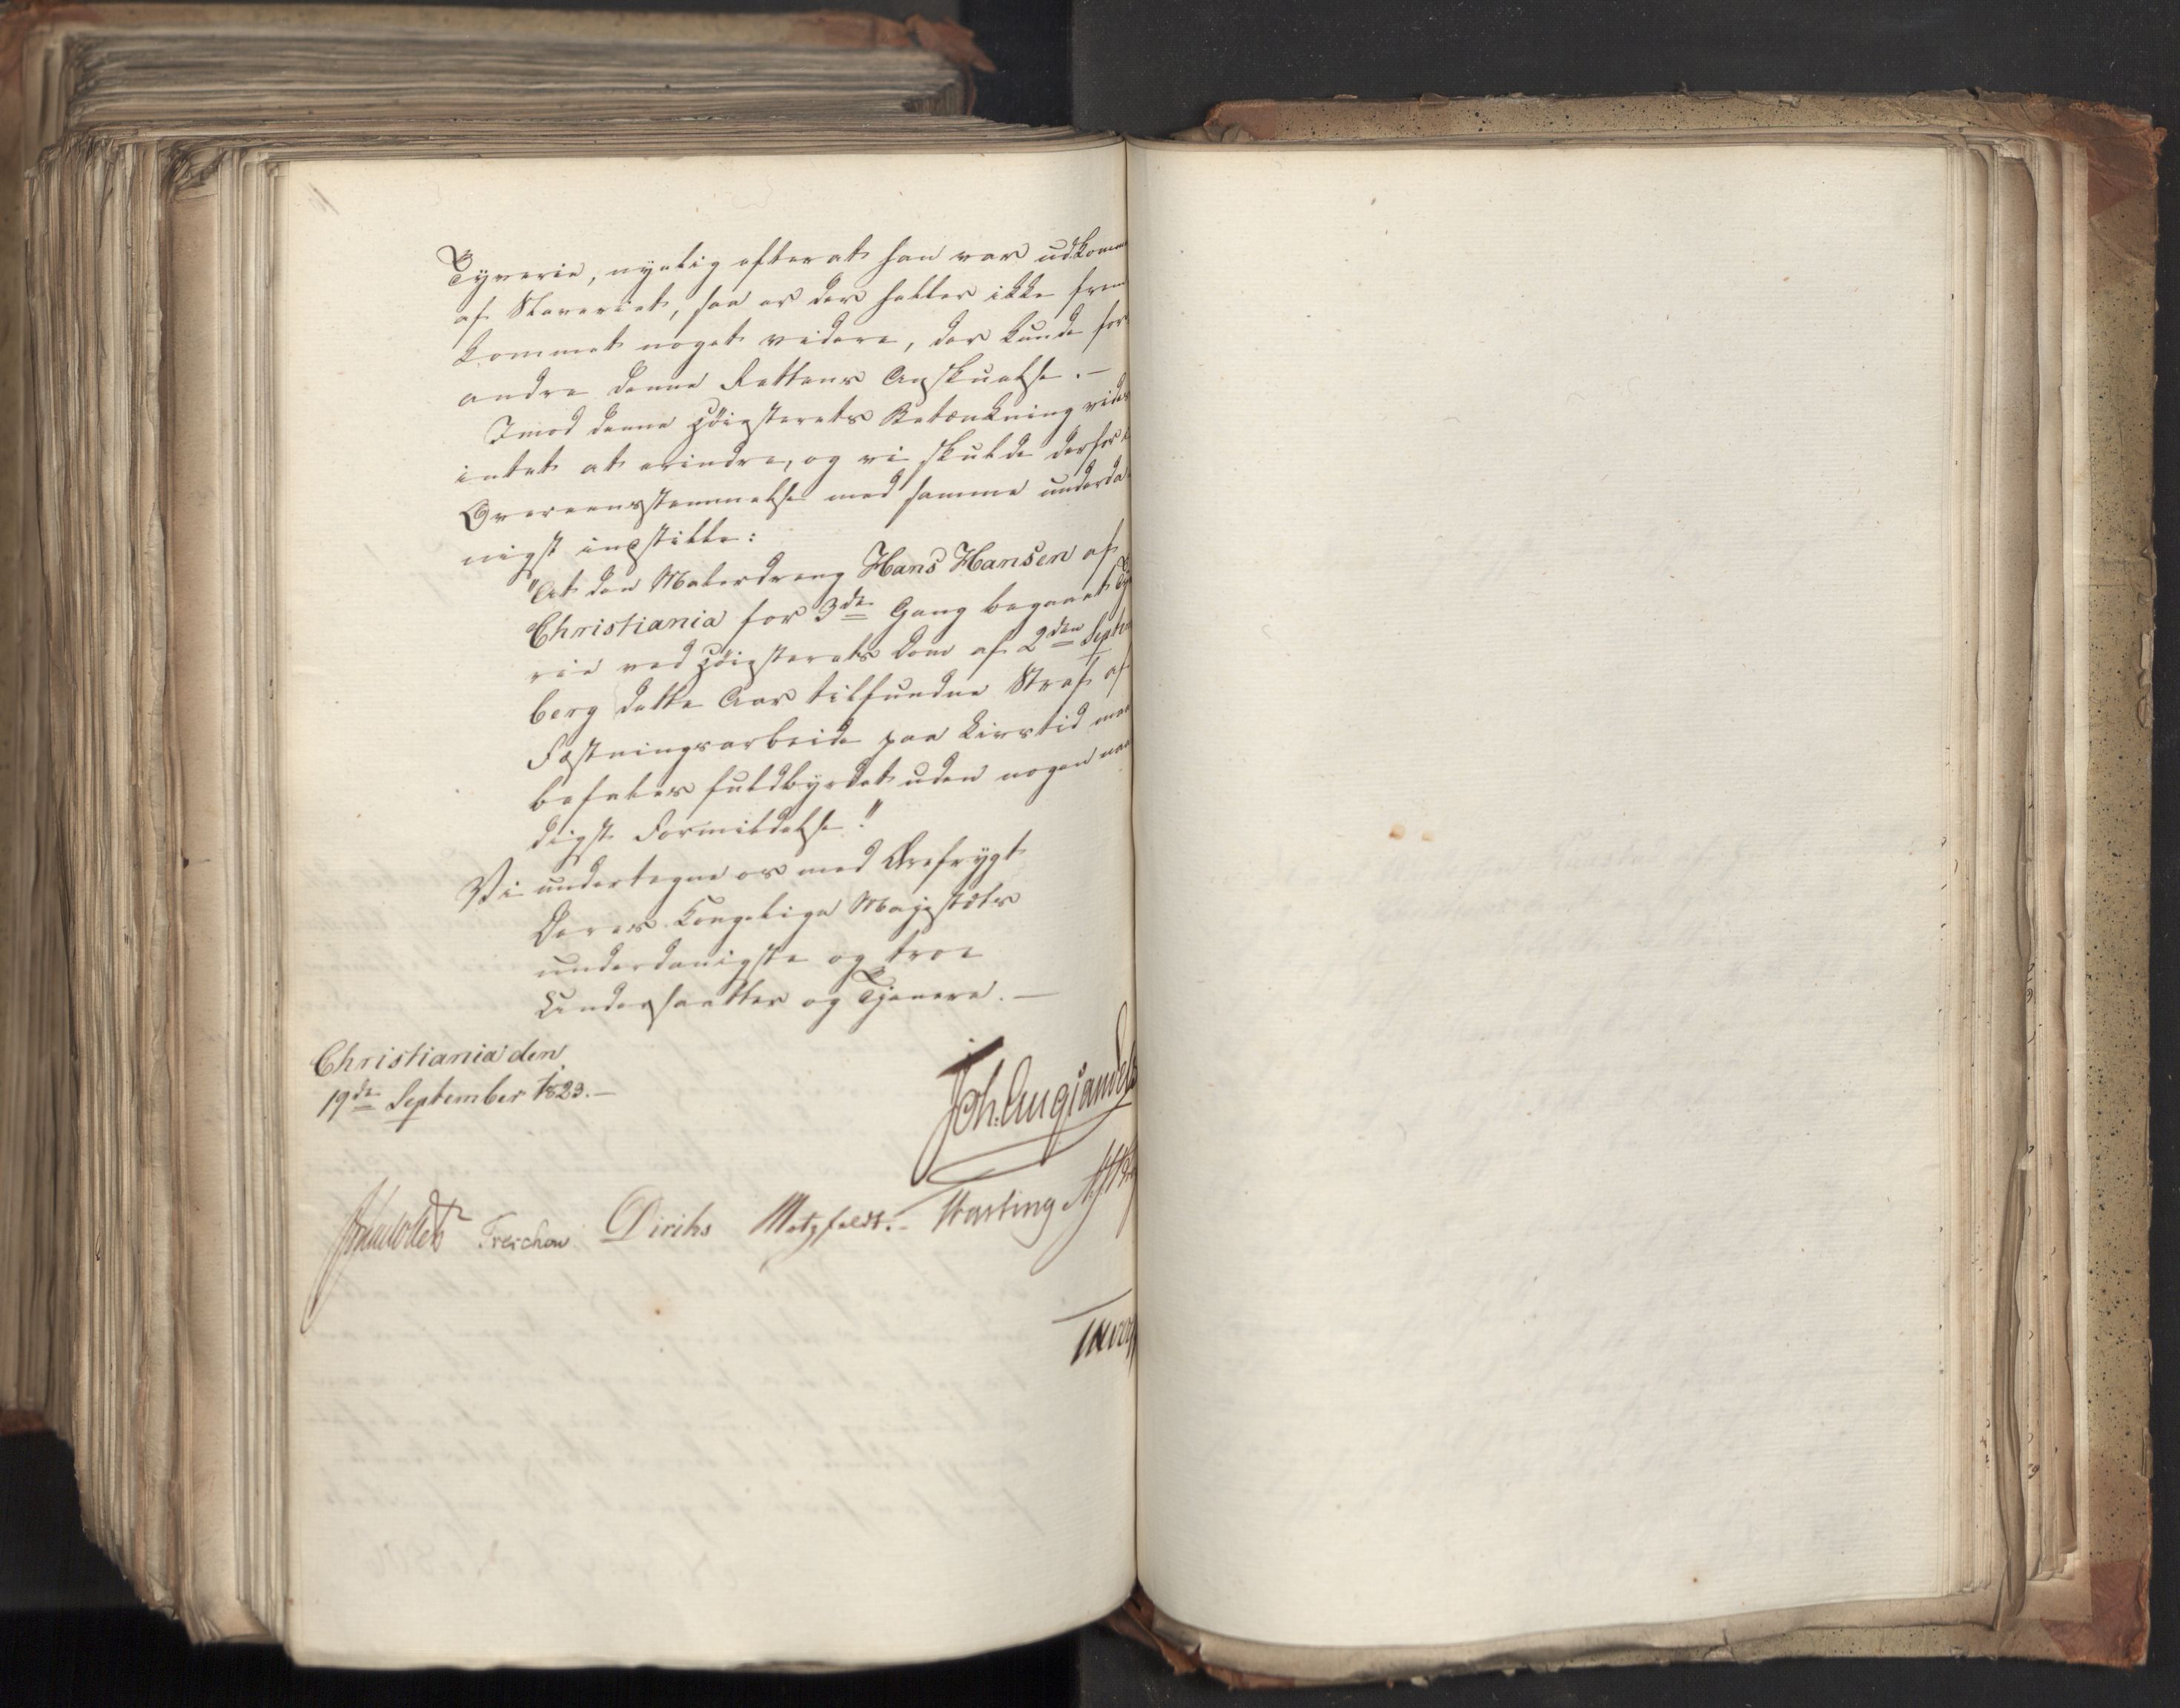 Tyverie, nyelig efterat han var udkom
af Slaveriet, saa er der heller ikke frem
kommet noget videre, der kunde for
andre denne Rettens Anskuelse. –
Imod denne Høiesterets Betænkning vides
intet at erindre, og vi skulde derfor i
Overeensstemmelse med samme underda
nigst indstille:
"At den Malerdreng Hans Hansen af
Christiania for 3die Gang begaaet Ty
rie ved Høiesterets Dom af 2den Septem
berg dette Aar tilfundne Straf af
Fæstningsarbeide paa Livstid maa
befales fuldbyrdet uden nogen naa
digst Formildelse."
Vi undertegne os med Ærefrygt
Deres Kongelige Majestæts
underdanigste og troe
Undersaatter og Tjenere. –
Christiania den
19de September 1823. –
Joh. Aug Sandels
Treschow Diriks Motzfeldt. Fasting